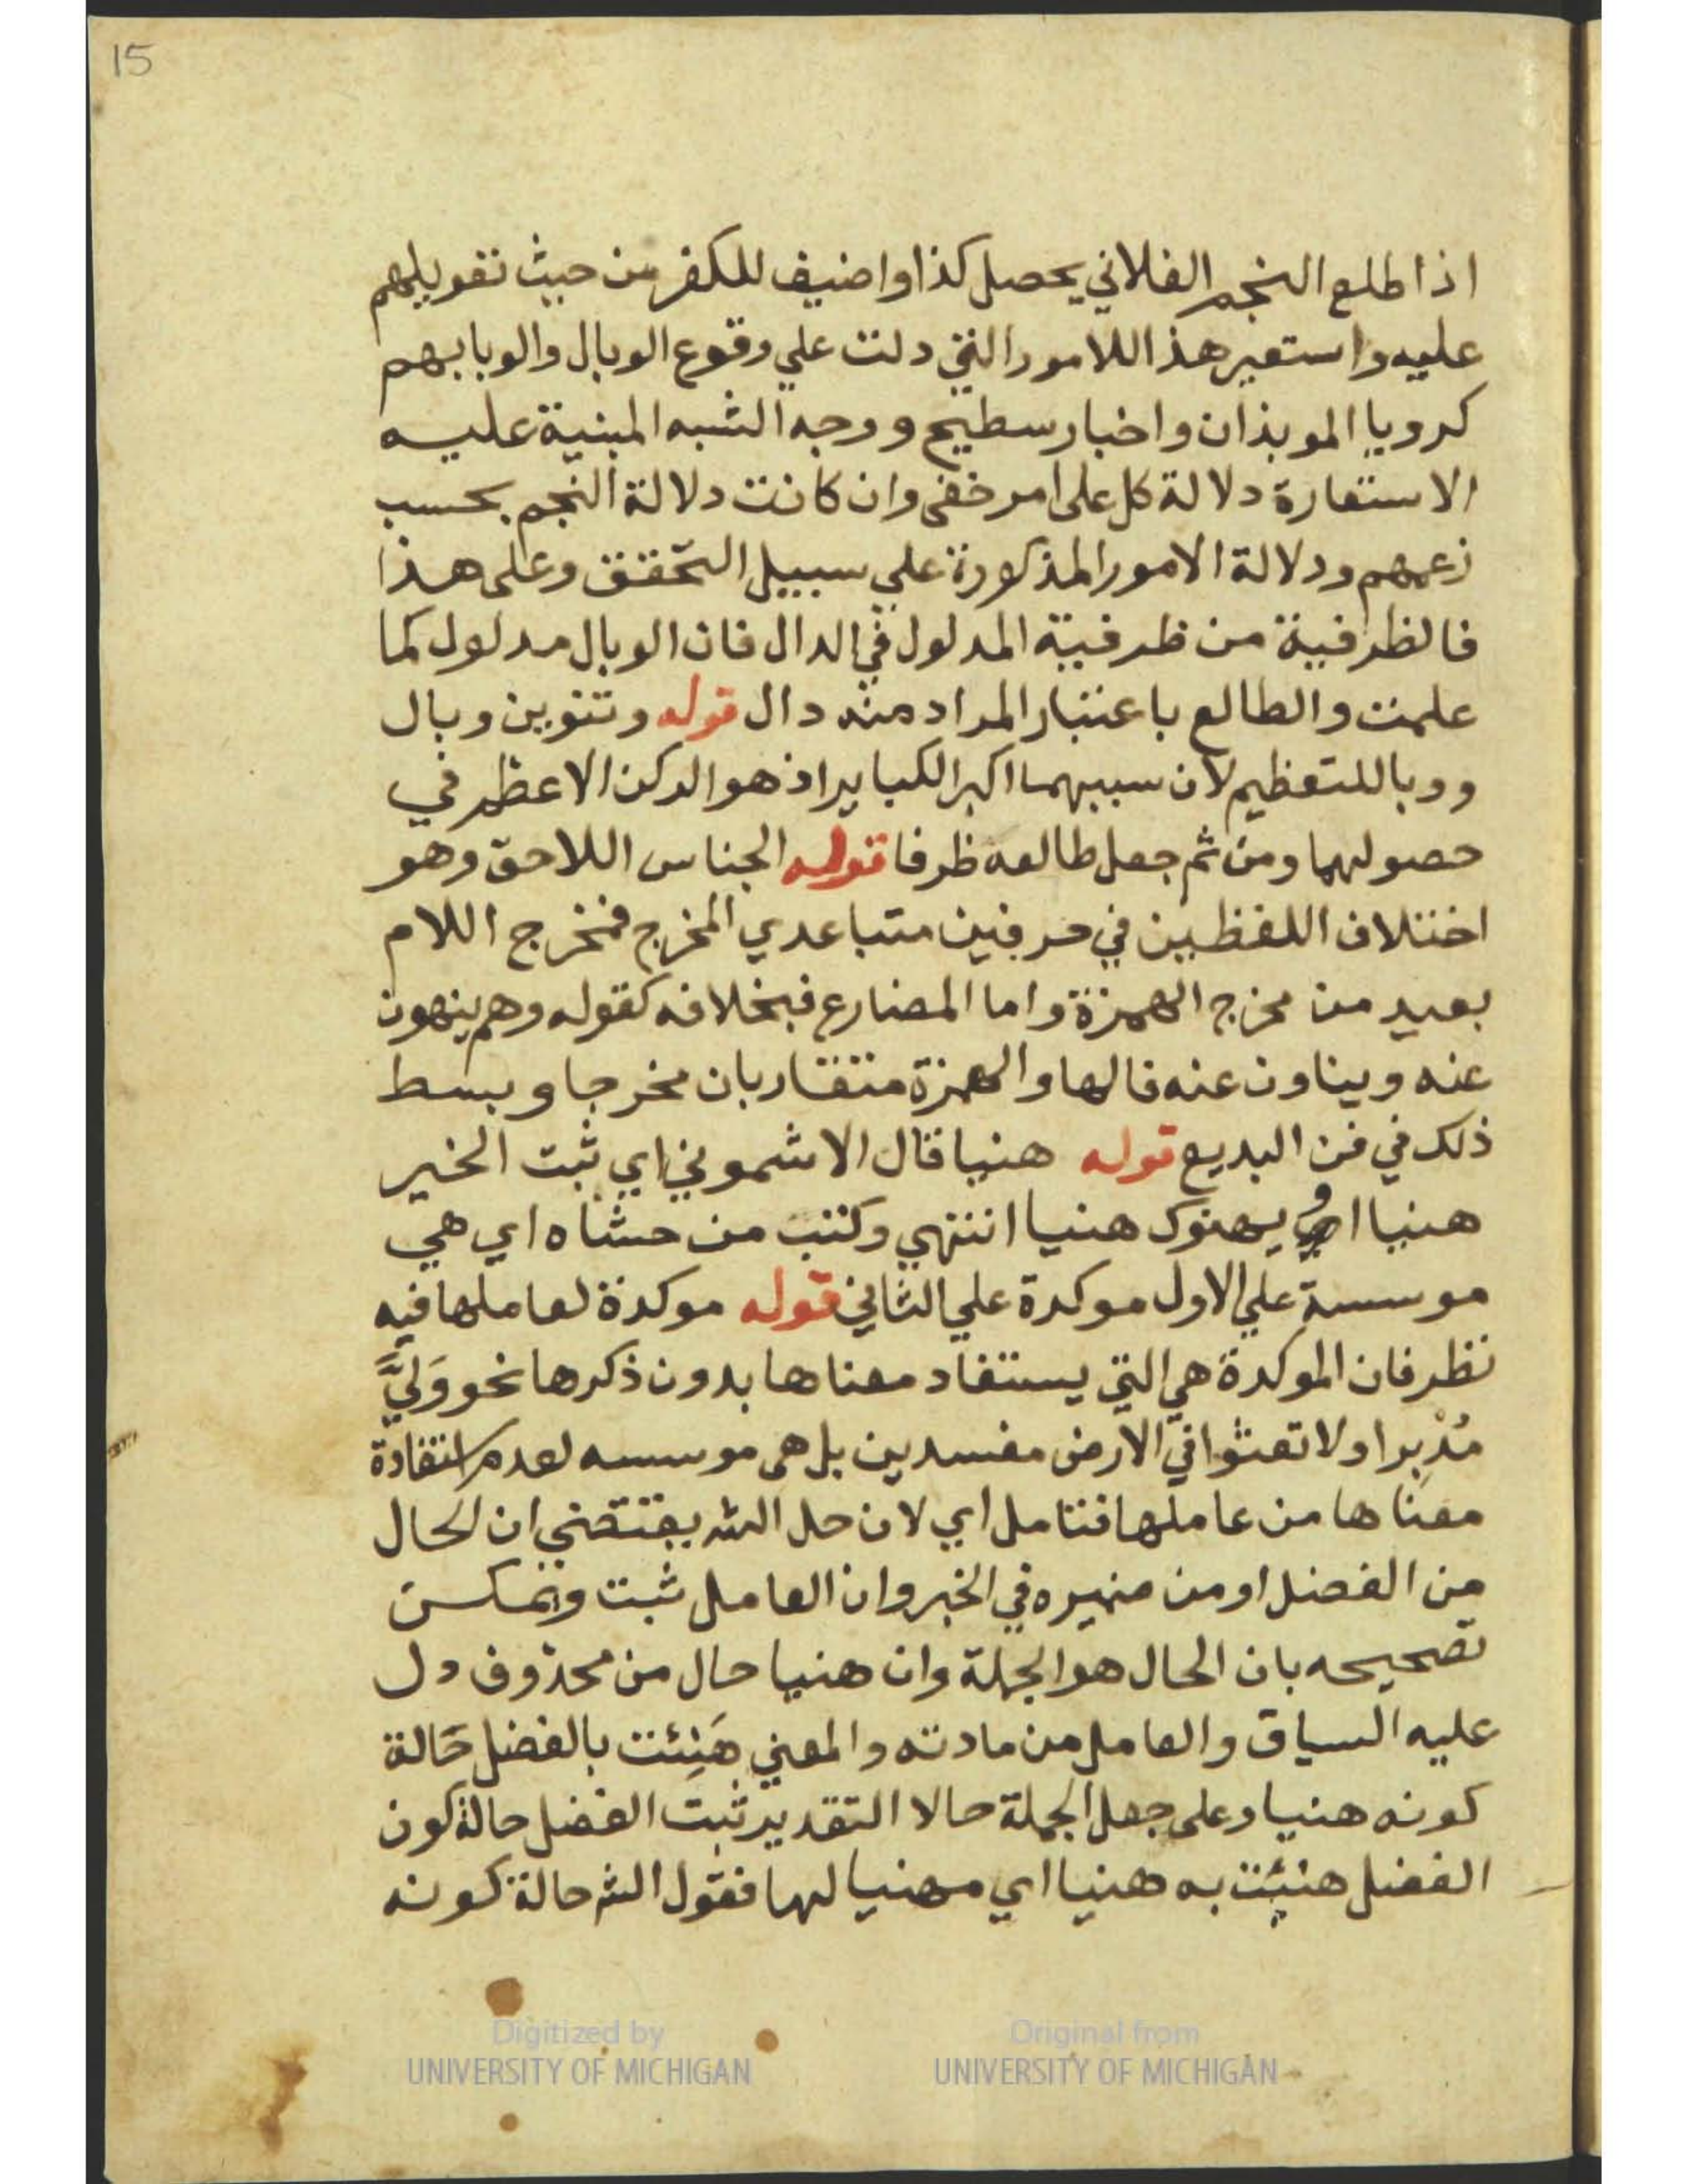 15
اذا طلع النجم الفلاني يحصل كذا واضيف للكفر من حيث تقويلهم
عليه واستعير هذا للامور التي دلت علي وقوع الوبال والوبا بهم
كرويا الموبذان واخبار سطيح ووجه الشبه المبنية عليه
الاستعارة دلالة كل على امر خفى وان كانت دلالة النجم بحسب
زعمهم ودلالة الامور المذكورة علي سبيل التحقق وعلى هذا
فالظرفية من ظرفية المدلول في الدال فان الوبال مدلول كما
علمت والطالع باعتبار المراد منه دال قوله وتنوين وبال
ووبا للتعظيم لان سببهما اكبر الكباير اذ هو الركن الاعظم في
حصولهما ومن ثم جعل طالعه ظرفا قوله الجناس اللاحق وهو
اختلاف اللفظين في حرفين متباعدي المخرج فمخرج اللام
بعيد من مخرج الهمزة واما المضارع فبخلافه كقوله وهم ينهون
عنه ويناون عنه فالها والهمزة متقاربان مخرجا وبسط
ذلك في فن البديع قوله هنيا قال الاشموني اي ثبت الخير
هنيا او يهنوك هنيا انتهي وكتب من حشاه اي هي
موسسة علي الاول موكدة علي الثاني قوله موكدة لعاملها فيه
نظر فان الموكدة هي التي يستفاد معناها بدون ذكرها نحو وَلَّيَ
مُدْبِرا ولا تعثوا في الارض مفسدين بل هى موسسه لعدم استفادة
معناها من عاملها فتامل اي لان حل الش يقتضي ان الحال
من الفضل او من ضميره في الخبر وان العامل ثبت ويمكن
تصحيحه بان الحال هو الجملة وان هنيا حال من محذوف دل
عليه السياق والعامل من مادته والمعني هَنِئت بالفضل حَالة
كونه هنيا وعلى جعل الجملة حالا التقدير ثبت الفضل حالة كون
الفضل هنئت به هنيا اي مهنيا لها فقول الش حالة كونه
Digitized by
UNIVERSITY OF MICHIGAN
Original from
UNIVERSITY OF MICHIGAN